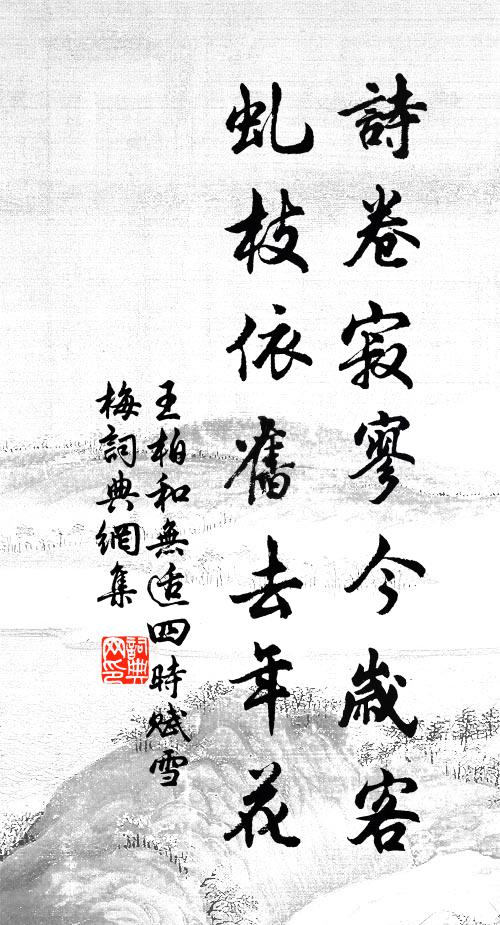 詩卷寂寥今歲客
虬枝依舊去年花
王柏和無適四時賦雪
梅詞典網集
詞典网印